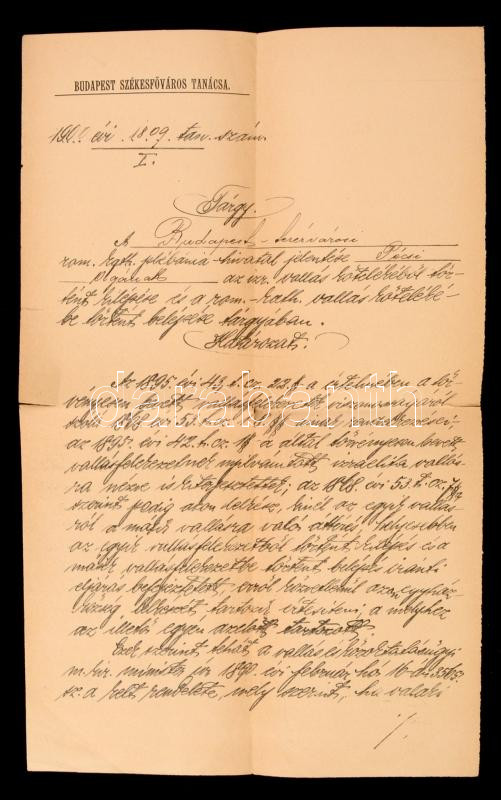 BUDAPEST SZÉKESFŐVÁROS TANÁCSA.
évi 1809. tan. szám.
I.
Tárgy.
A Budapest-terézvárosi
rom. kath. plébánia-hivatal jelentése Pécsi
Olgának az izr. vallás kötelékéből tör-
tént kilépése és a rom. kath. vallás köteléké-
be történt belépése tárgyában.
Határozat:
Az 1895. évi 42. t. cz. 22. § a értelmében a tör-
vényesen bevett vallásfelekezetek viszonyosságáról
szóló 1868. évi 53. t. cz.
az 1895. évi 42. t. cz. által törvényesen bevett
vallásfelekezetnek nyilvánított izraelita vallás-
ra nézve is kiterjesztettek; az 1868. évi 53. t. cz.
szerint pedig azon lelkész, kinél az egyik vallás-
ról a másik vallásra való áttérés, helyesebben
az egyik vallásfelekezetből történt kilépés és a
másik vallásfelekezetbe történt belépés iránti
eljárás befejeztetett, erről közvetlenül azon egyház-
község lelkészét tartozik értesíteni, a melyhez
az illető egyén azelőtt tartozott.
Ezek szerint tehát a vallás és közoktatásügyi
m. kir. minister úr évi február hó 16-án
sz. a. kelt rendelete, mely szerint, ha valaki
./.
darabanth